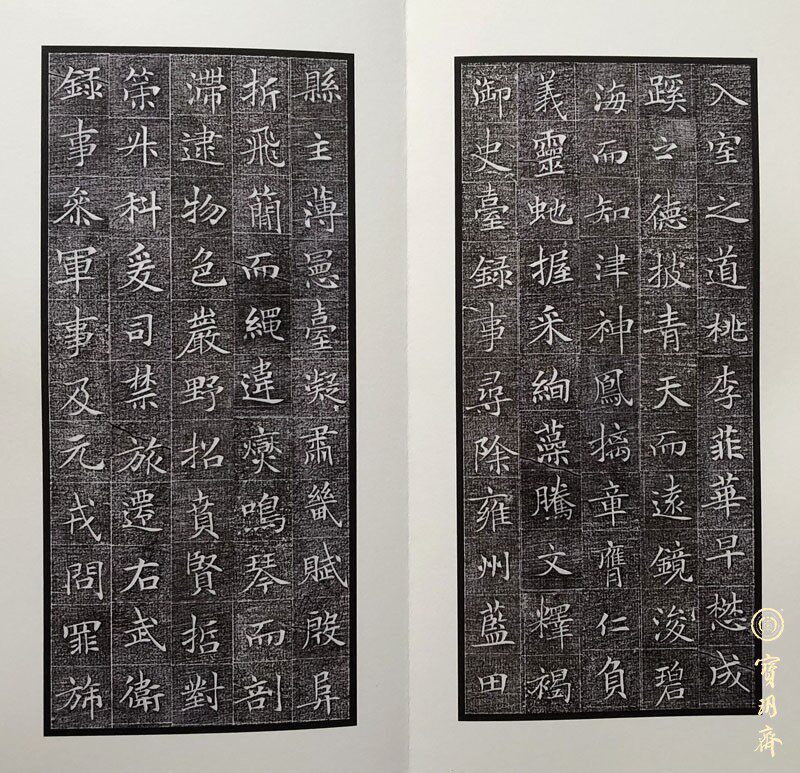 入室之道桃李菲華早懋成
蹊之德披青天而遠鏡浚碧
海而知津神鳳摛章膺仁負
義靈虵握采絢藻騰文釋褐
御史臺録事尋除雍州藍田
縣主薄憲臺凝肅畿賦殷阜
折飛簡而繩違爕鳴琴而剖
滯逮物色巖野招賁賢哲對
策升科爰司禁旅遷右武衛
録事叅軍事及元戎問罪旆
寶玥齋